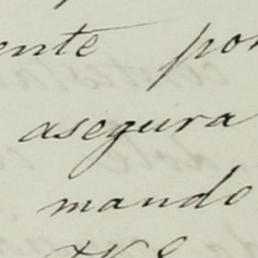 ente por
asegura
mando